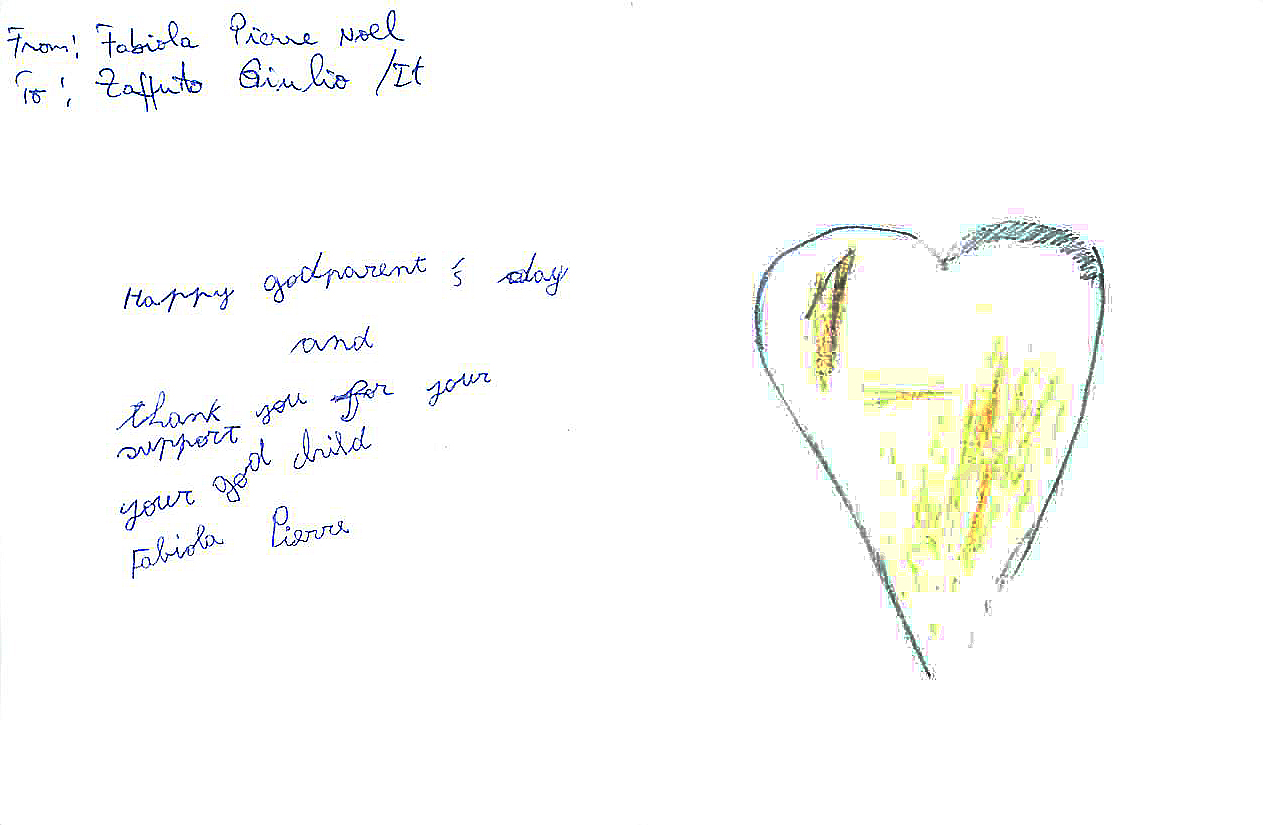 From: Fabiola Pierre Noel
To: Zaffuto Giulio /It
Happy godparent's day
and
thank you for your
support
your god child
Fabiola Pierre